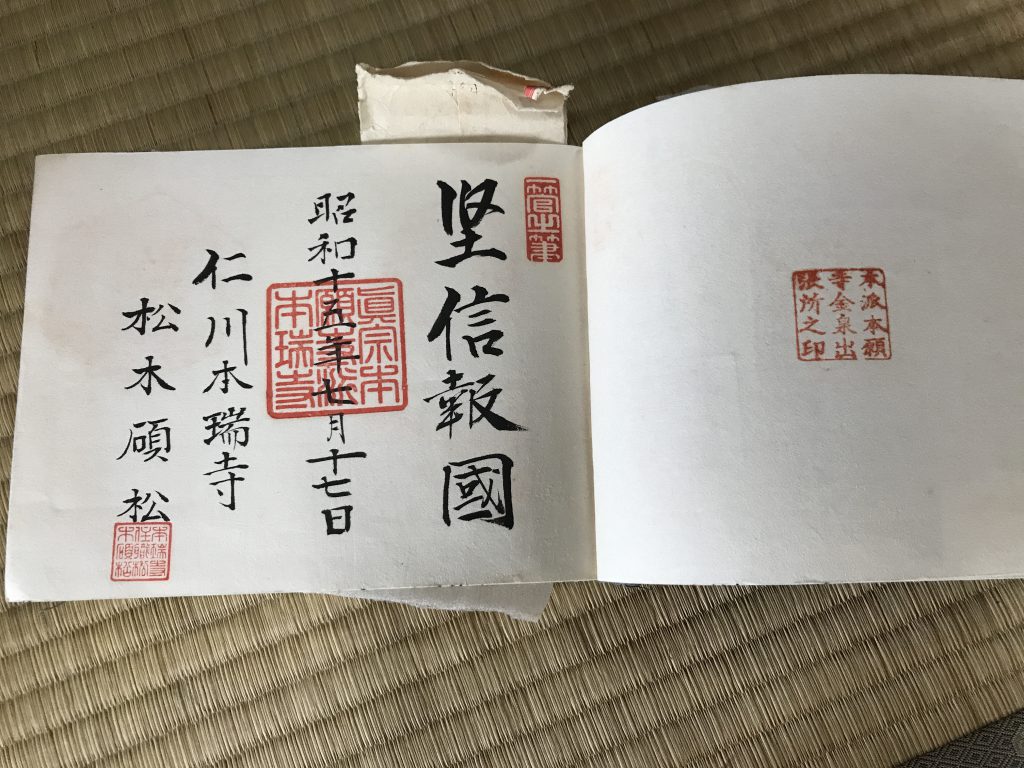 本派本願
寺金泉出
張所之印
堅信報國
昭和十五年七月十七日
眞宗本
願寺派
本瑞寺
仁川本瑞寺
松木碩松
本瑞寺
住職松
木碩松